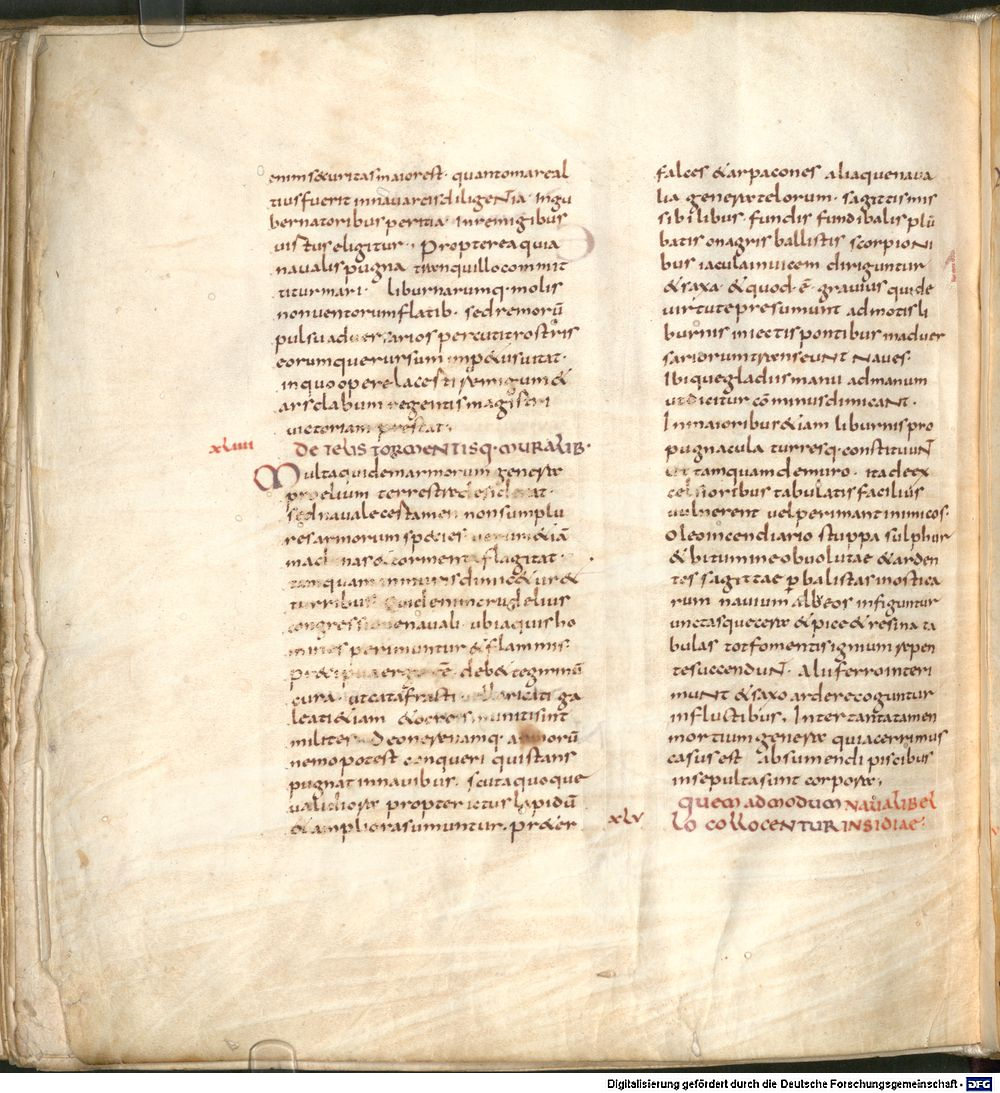 enim securitas maior est · quanto mare al
tius fuerit in navarcis diligentia · in gu
bernatoribus peritia · in remigibus
virtus eligitur · Propterea quia
navalis pugna tranquillo commit
titur mari · liburnarumq· molis
non ventorum flatib· sed remorū
pulsu adversarios percutit rostris
eorumque rursum impetus vitat ·
in quo opere lacerti remigum &
ars clabum regentis magistri
victoriam prestat ·
xliiii DE TELIS TORMENTISQ· MURALIB·
Multa quidem armorum genera
proelium terrestrae desiderat ·
sed navale certamen non sum plu
res armorum species verum &iā
machinas & tormenta flagitat
tamquam in muris dimic&ur &
turribus · Quid enim crudelius
congressione navali · ubi aquis ho
mines perimuntur & flammis ·
Praecipua ergo ē deb& tegminū
cura · ut catafracti loricati ga
leati &iam & ocreis muniti sint
milites · De onere namq· armorū
nemo potest conqueri qui stans
pugnat in navibus · scuta quoque
validiora propter ictus lapidū
& ampliora sumuntur · pr&er
falces & arpacones aliaque nava
lia genera telorum · sagittis mis
sibilibus · fundis fundibalis plū
batis onagris ballistis scorpioni
bus iacula invicem diriguntur
& saxa · & quod ē gravius qui de
virtute presumunt admotis li
burnis iniectis pontibus in adver
sariorum transeunt naves ·
Ibique gladiis manu ad manum
ut dicitur cōminus dimicant ·
In maioribus &iam liburnis pro
pugnacula turresq· constituunt
ut tamquam de muro · ita de ex
celsioribus tabulatis facilius
vulnerent vel perimant inimicos ·
Oleo incendiario stuppa sulphur
& bitumine obvolutae & arden
tes sagittae p balistas in ostica
rum navium albeos infiguntur
unctasque cera & pice & resina ta
bulas tot fomentis ignium repen
te succendunt · alii ferro interi
munt & saxo ardere coguntur
in fluctibus · Inter tanta tamen
mortium genera qui acerrimus
casus est absumendi piscibus
insepulta sunt corpora ·
xlv QUEM AD MODUM NAVALI BEL
LO COLLOCENTUR INSIDIAE·
Digitalisierung gefördert durch die Deutsche Forschungsgemeinschaft - DFG